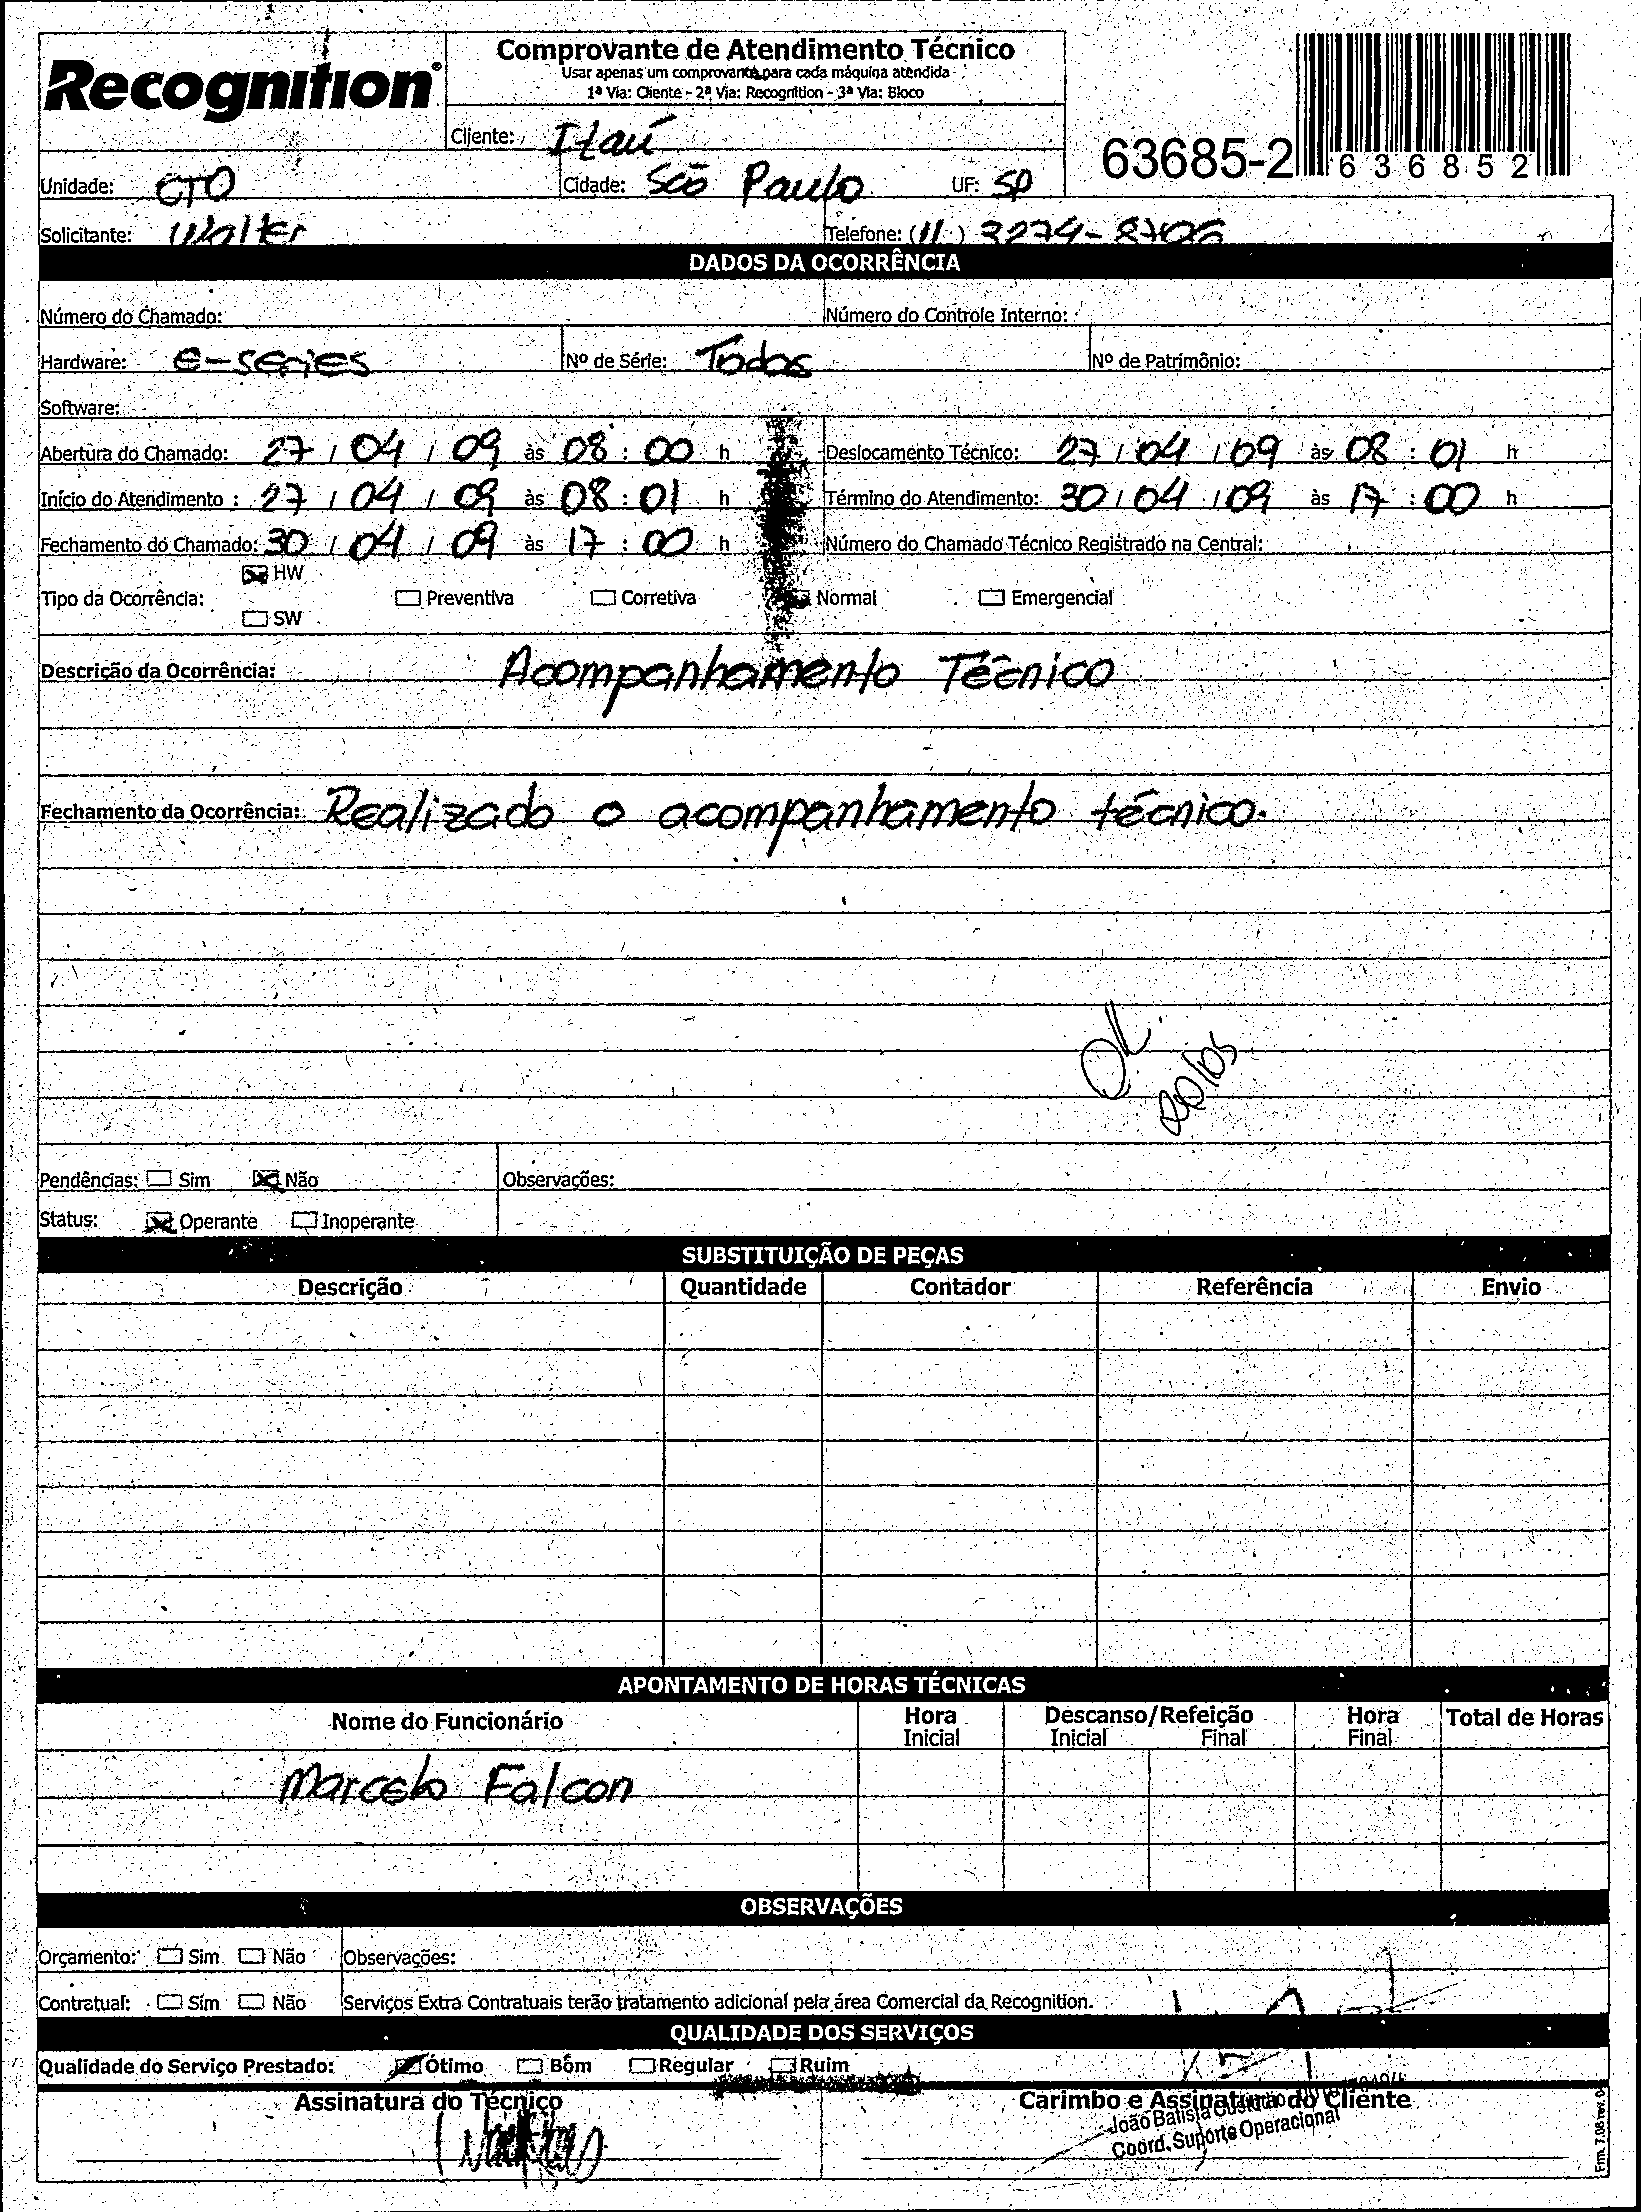 Recognition®
Comprovante de Atendimento Técnico
Usar apenas um comprovante para cada máquina atendida
1ª Via: Cliente - 2ª Via: Recognition - 3ª Via: Bloco
Cliente: Itaú
63685-2
636852
Unidade: CTO Cidade: São Paulo UF: SP
Solicitante: Walter Telefone: (11) 3274-8706
DADOS DA OCORRÊNCIA
Número do Chamado: Número do Controle Interno:
Hardware: e-series Nº de Série: Todos Nº de Patrimônio:
Software:
Abertura do Chamado: 27 / 04 / 09 às 08 : 00 h Deslocamento Técnico: 27 / 04 / 09 às 08 : 01 h
Início do Atendimento : 27 / 04 / 09 às 08 : 01 h Término do Atendimento: 30 / 04 / 09 às 17 : 00 h
Fechamento do Chamado: 30 / 04 / 09 às 17 : 00 h Número do Chamado Técnico Registrado na Central:
HW
Tipo da Ocorrência: Preventiva Corretiva Normal Emergencial
SW
Descrição da Ocorrência: Acompanhamento Técnico
Fechamento da Ocorrência: Realizado o acompanhamento técnico.
Ok
Pendências: Sim Não Observações:
Status: Operante Inoperante
SUBSTITUIÇÃO DE PEÇAS
Descrição Quantidade Contador Referência Envio
APONTAMENTO DE HORAS TÉCNICAS
Nome do Funcionário Hora Inicial Descanso/Refeição Inicial Final Hora Final Total de Horas
Marcelo Falcon
OBSERVAÇÕES
Orçamento: Sim Não Observações:
Contratual: Sim Não Serviços Extra Contratuais terão tratamento adicional pela área Comercial da Recognition.
QUALIDADE DOS SERVIÇOS
Qualidade do Serviço Prestado: Ótimo Bom Regular Ruim
Assinatura do Técnico Carimbo e Assinatura do Cliente
João Batista
Coord. Suporte Operacional